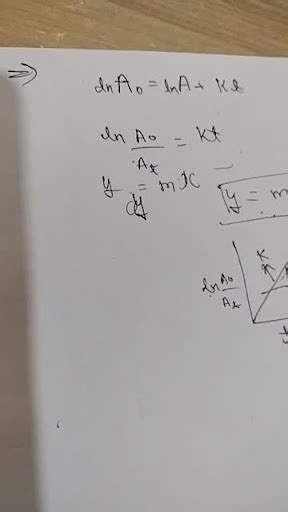 ⇒ ln A₀ = ln A + Kt
ln A₀/Aₜ = Kt
y = mx
y = m
K
ln A₀/Aₜ